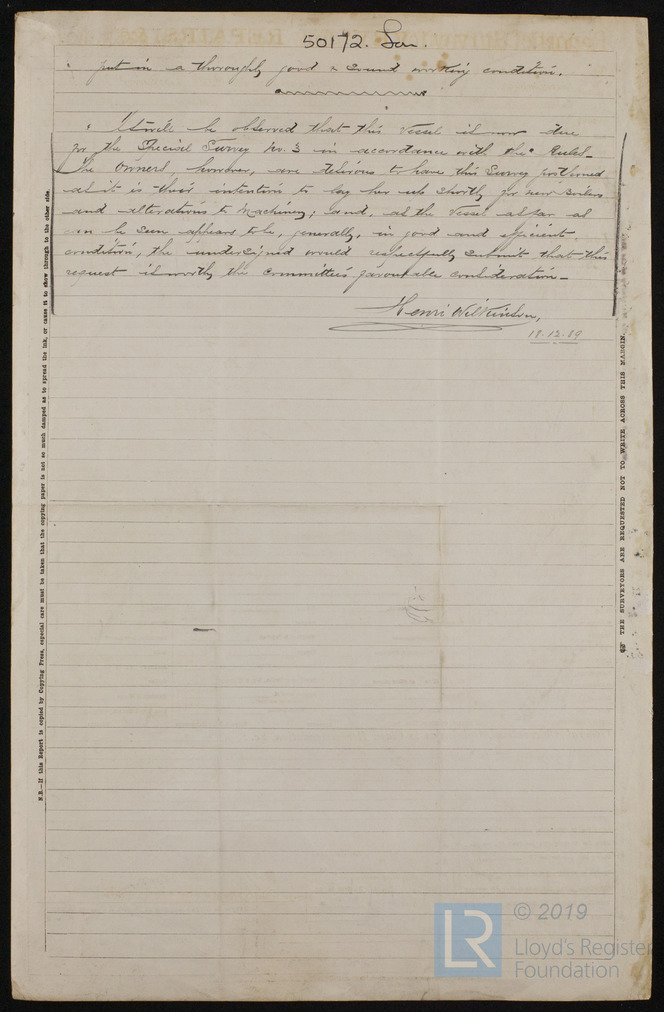 50172. Lon.
put in a thoroughly good & sound working condition.
It will be observed that this Vessel is now due
for the Special Survey No. 3 in accordance with the Rules_
The Owners, however, are desirous to have this Survey postponed
as it is their intention to lay her up shortly for new Boilers
and alterations to Machinery; and, as the Vessel as far as
can be seen appears to be, generally, in good and efficient
condition, the undersigned would respectfully submit that this
request is worthy the Committee's favourable consideration_
Henri Wilkinson,
18.12.89
N.B.—If this Report is copied by Copying Press, especial care must be taken that the copying paper is not so much damped as to spread the ink, or cause it to show through to the other side.
THE SURVEYORS ARE REQUESTED NOT TO WRITE ACROSS THIS MARGIN.
LR
© 2019
Lloyd's Register
Foundation